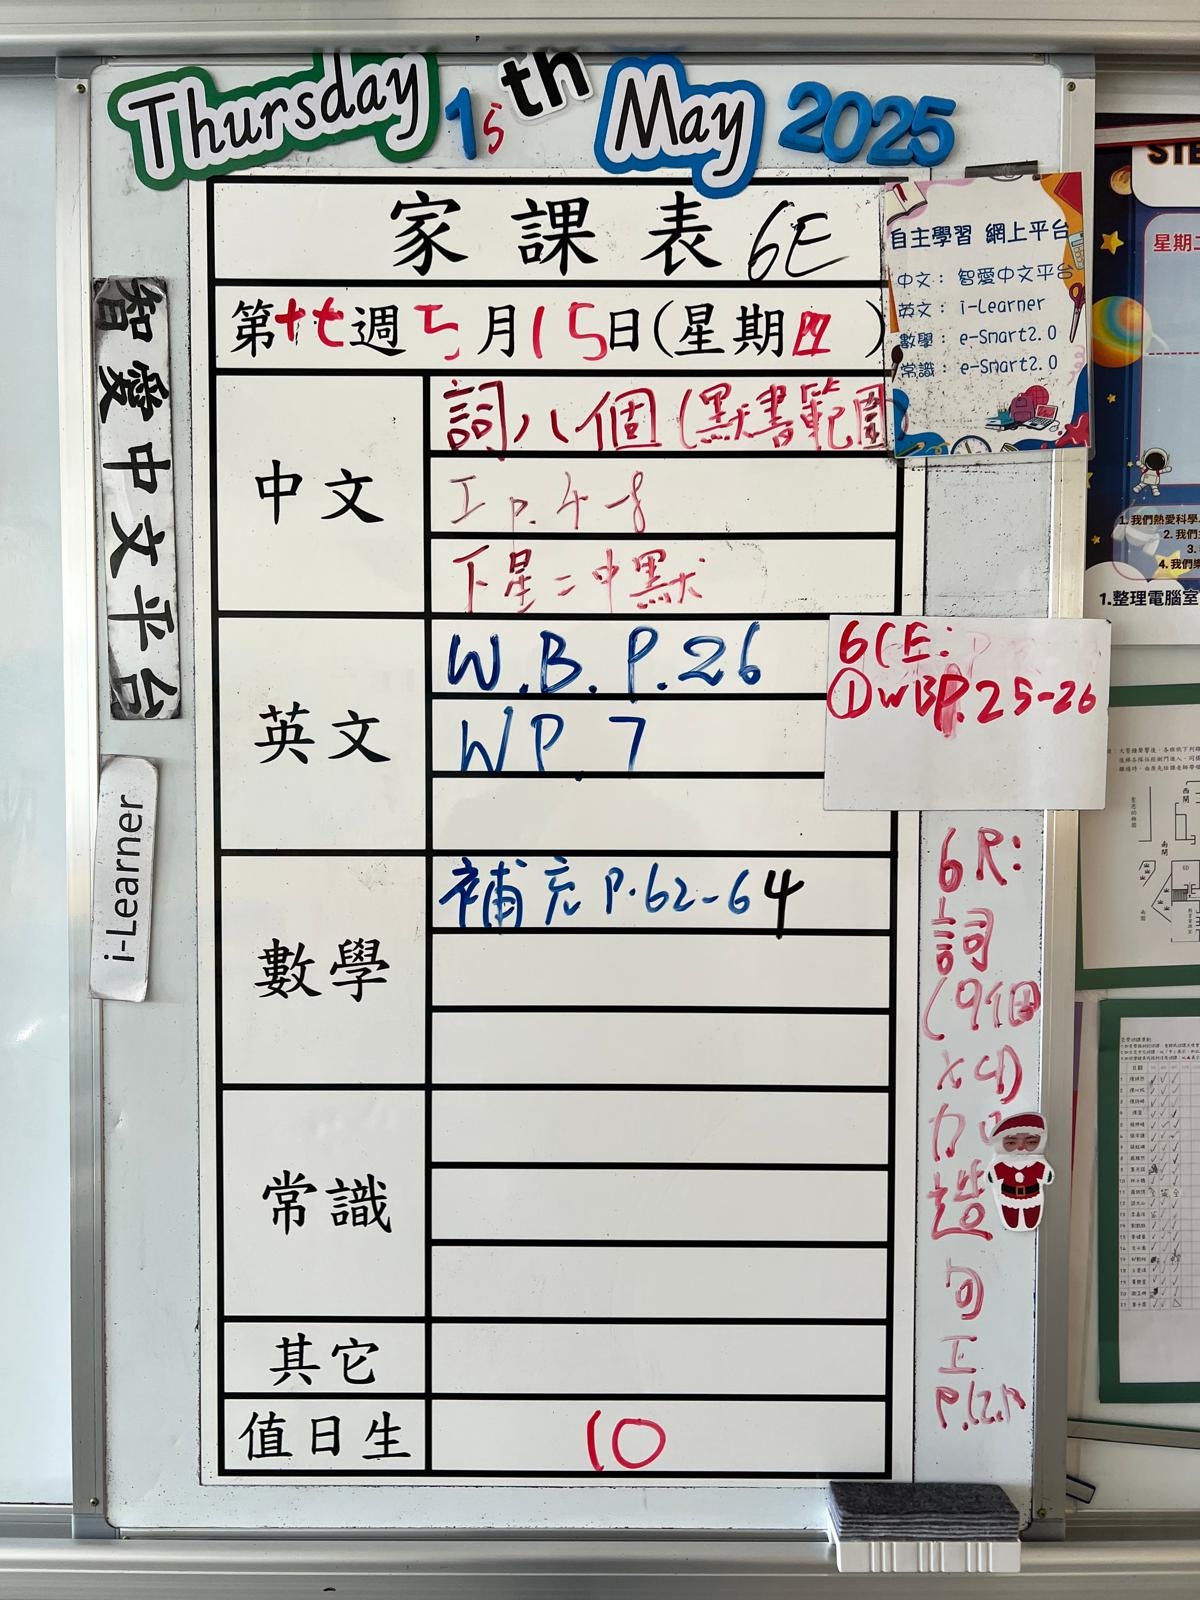 Thursday 15th May 2025
家課表 6E
第十七週5月15日(星期四)
中文
詞八個(默書範圍
工 p. 4-8
下星二中默
英文
W.B. P.26
WP.7
6CE:
①WBP.25-26
數學
補充 P.62-64
常識
其它
值日生
10
智愛中文平台
i-Learner
自主學習 網上平台
中文: 智愛中文平台
英文: i-Learner
數學: e-Smart2.0
常識: e-Smart2.0
6R:
詞
(9個
造
句
工
STE
星期二
1. 我們熱愛科學
2. 我們
3.
4. 我們
1.整理電腦室
西閘
南閘
6D
日期